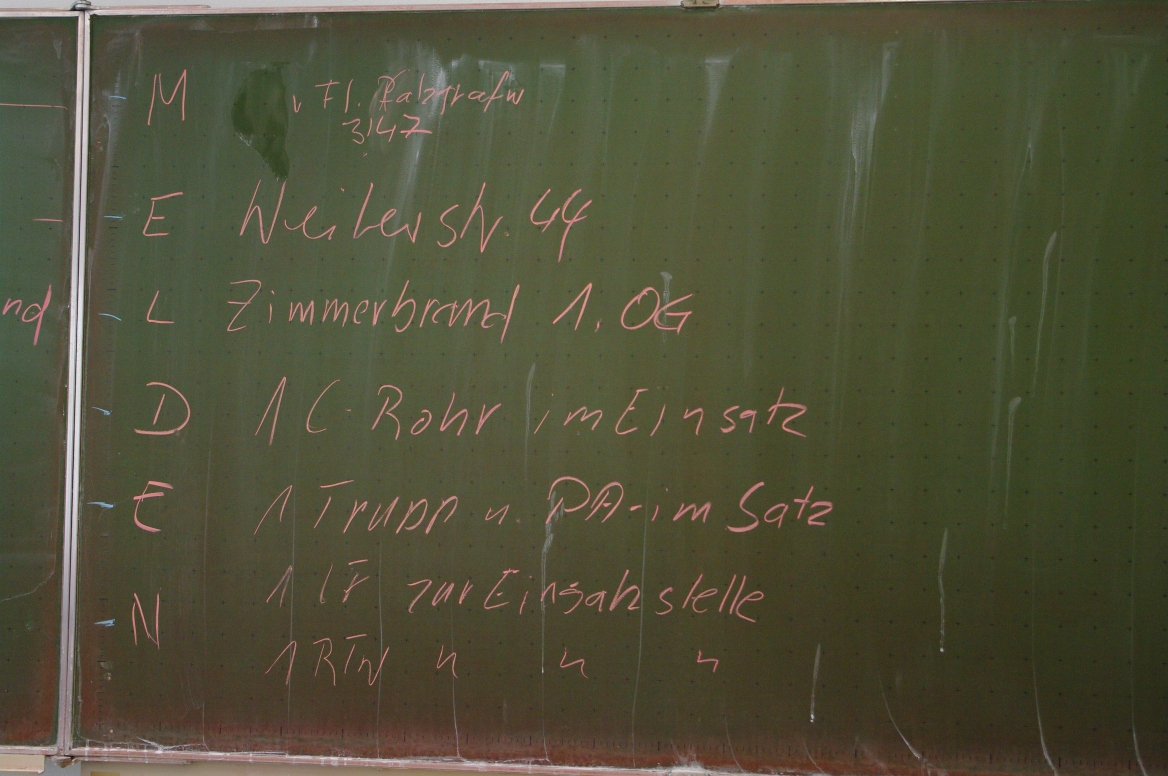 nd
M v Fl. Pfalzgrafw
3/47
E Weilerstr. 44
L Zimmerbrand 1. OG
D 1 C-Rohr im Einsatz
E 1 Trupp u. PA-im Satz
N 1 LF zur Einsatzstelle
1 RTW " " "